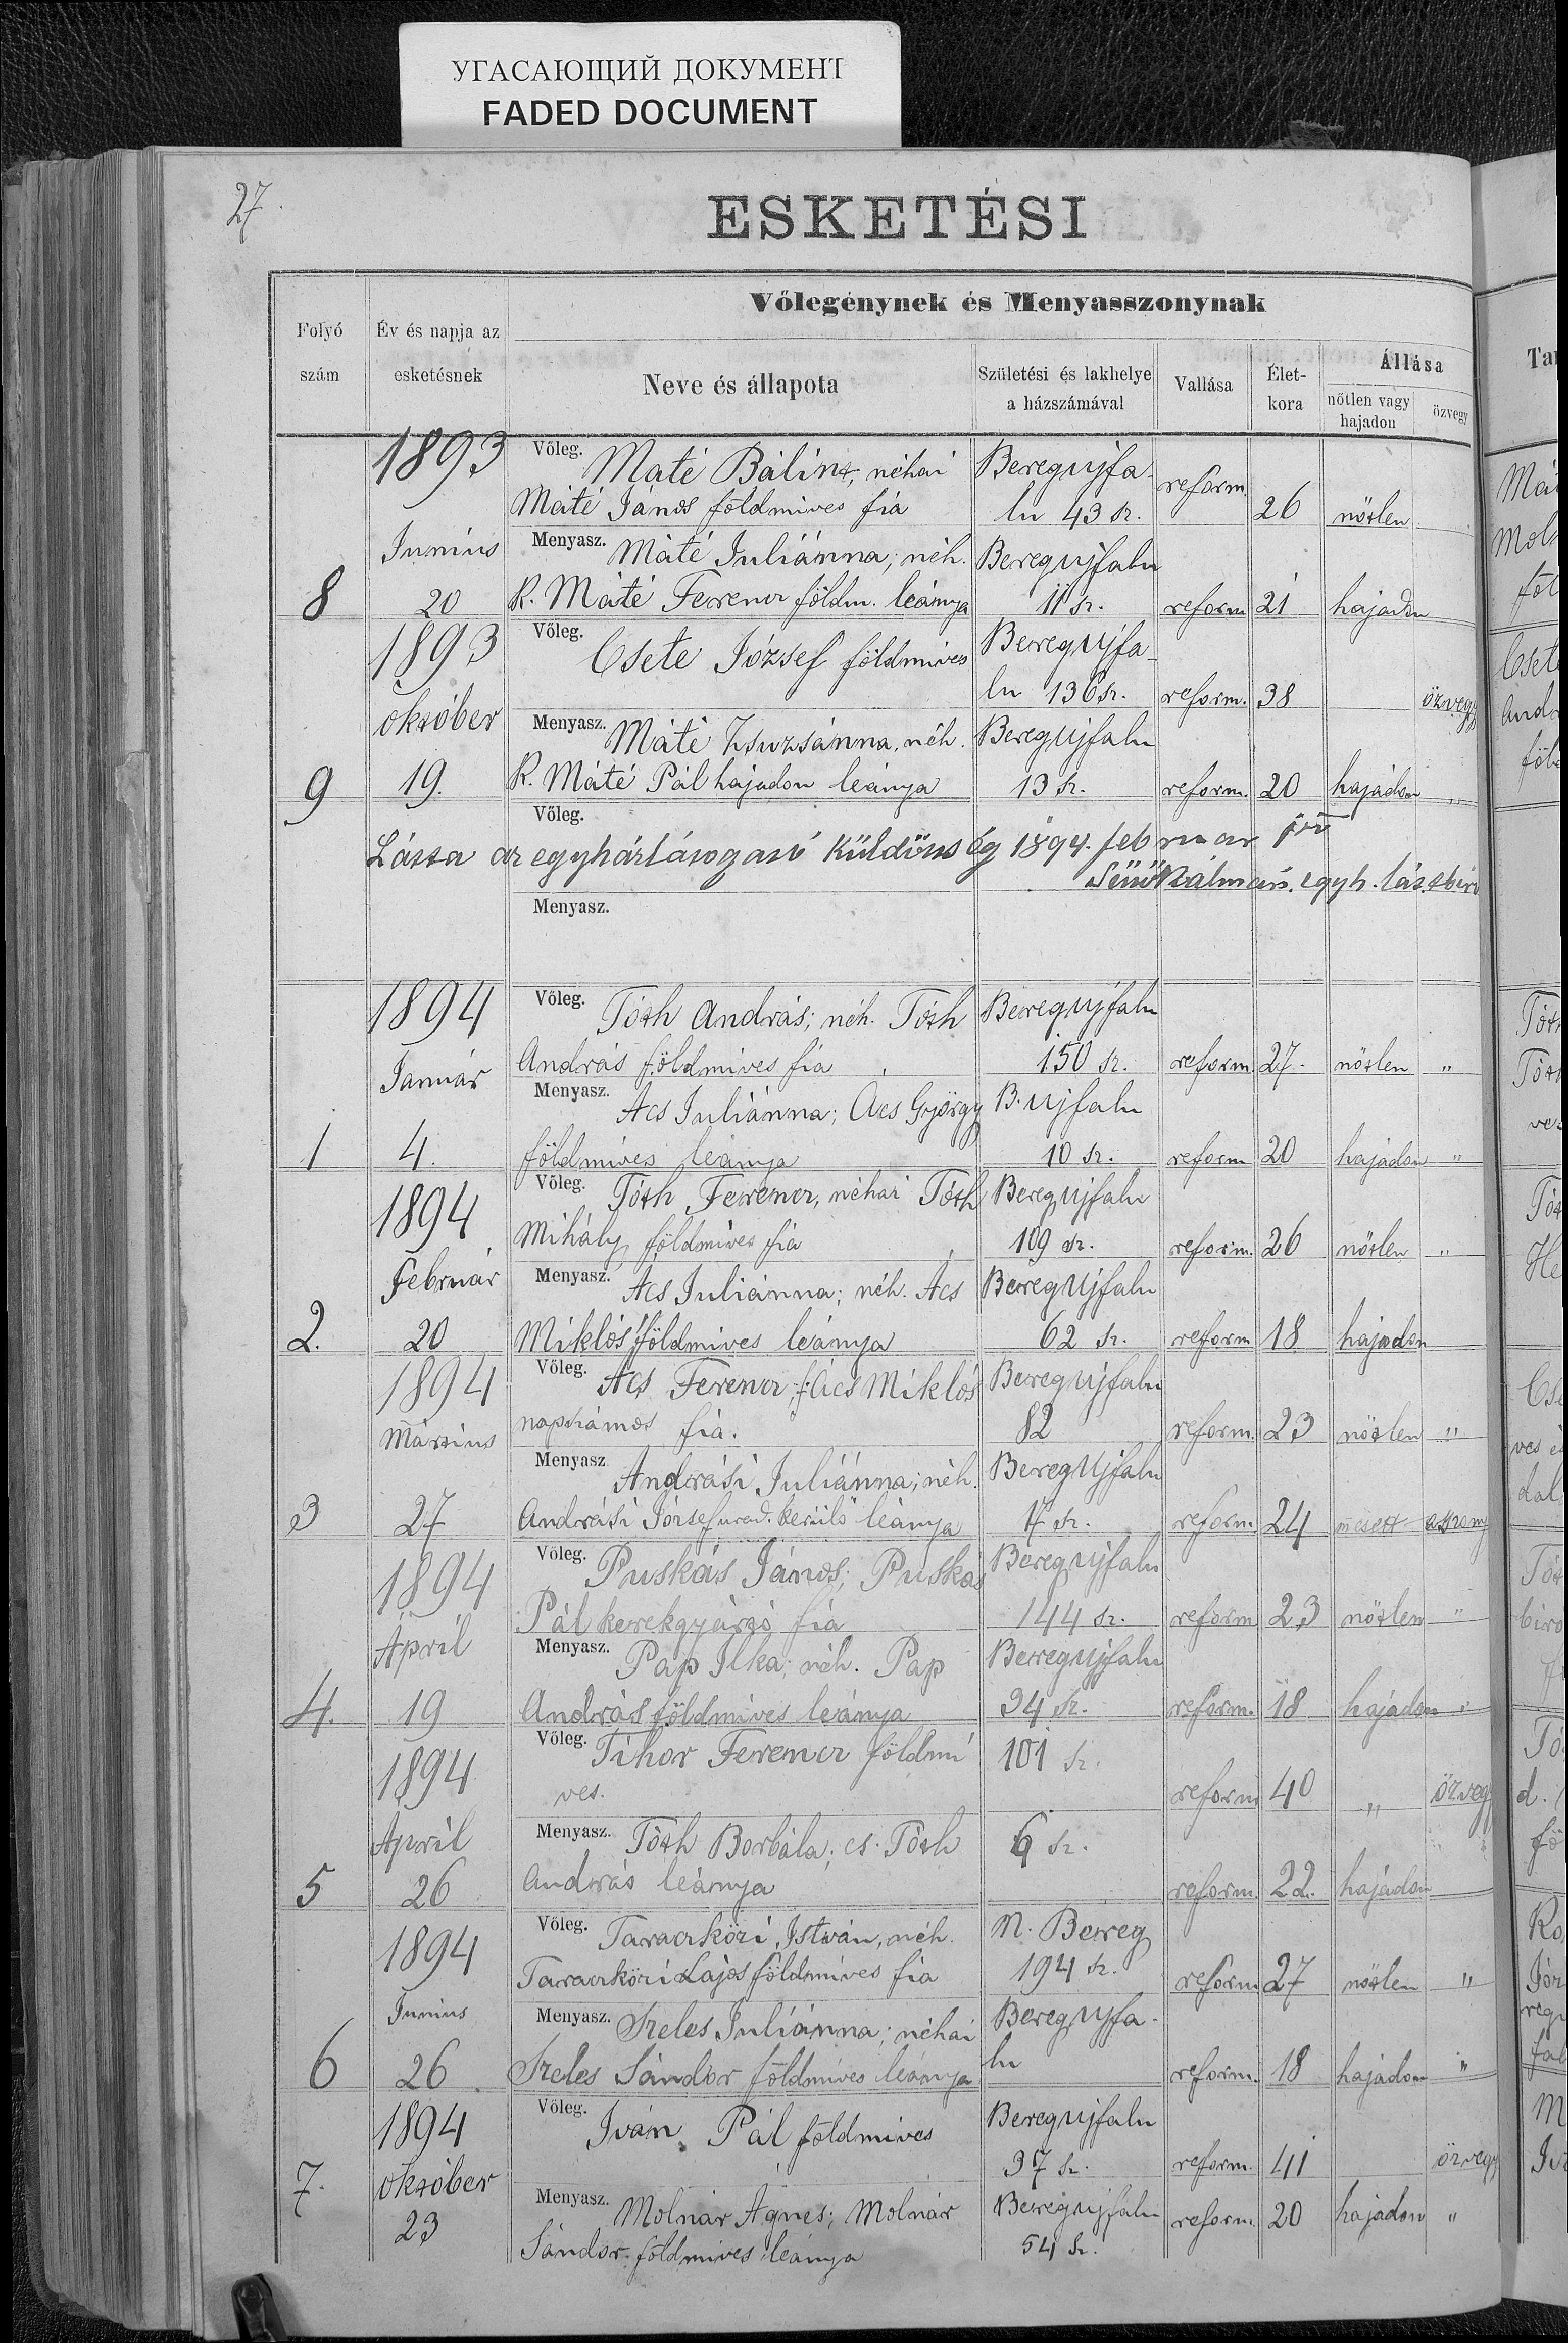 УГАСАЮЩИЙ ДОКУМЕНТ
FADED DOCUMENT
27.
ESKETÉSI
Vőlegénynek és Menyasszonynak
Folyó szám
Év és napja az esketésnek
Neve és állapota
Születési és lakhelye a házszámával
Vallása
Élet-kora
Állása
nőtlen vagy hajadon
özvegy
1893
Vőleg. Máté Bálint, néhai Beregujfa-
Máté János földmives fia lu 43 sz. reform. 26 nőtlen
Junius Menyasz. Máté Juliánna; néh. Beregujfalu
8 20 K. Máté Ferencz földm. leánya 11 sz. reform 21 hajadon
1893 Vőleg. Csete József földmives Beregujfa-
lu 136 sz. reform. 38 özvegy
október Menyasz. Máté Zsuzsánna, néh. Beregujfalu
9 19. K. Máté Pál hajadon leánya 13 sz. reform. 20 hajadon "
Vőleg.
Látta az egyházlátogató küldöttség 1894. februar
Kálmán, egyh.
Menyasz.
1894 Vőleg. Tóth András; néh. Tóth Beregujfalu
András földmives fia 150 sz. reform. 27. nőtlen "
Január Menyasz. Acs Juliánna; Acs György B. ujfalu
1 4. földmives leánya 10 sz. reform 20 hajadon "
1894 Vőleg. Tóth Ferencz, néhai Tóth Beregujfalu
Mihály földmives fia 109 sz. reform. 26 nőtlen "
Február Menyasz. Acs Juliánna; néh. Acs Beregujfalu
2. 20 Miklós földmives leánya 62 sz. reform 18 hajadon
1894 Vőleg. Acs Ferencz; Acs Miklós Beregujfalu
Märtius napszámos fia. 82 reform. 23 nőtlen "
Menyasz Andrási Juliánna; néh. Beregujfalu
3 27 Andrási József urad. kerülő leánya 7 sz. reform. 24 mesett asszony
1894 Vőleg. Puskás János; Puskás Beregujfalu
Pál kerekgyártó fia 144 sz. reform 23 nőtlen "
April Menyasz. Pap Ilka; néh. Pap Beregujfalu
4. 19 András földmives leánya 34 sz. reform. 18 hajadon "
1894 Vőleg. Tihor Ferencz földmi 101 sz.
ves. reform 40 " özvegy
April Menyasz. Tóth Borbála; cs. Tóth 6 sz.
5 26 András leánya reform. 22. hajadon
1894 Vőleg. Taraczközi István, néh. N. Bereg
Taraczközi Lajos földmives fia 194 sz. reform 27 nőtlen "
Junius Menyasz. Szeles Juliánna; néhai Beregujfa-
6 26. Szeles Sándor földmives leánya lu reform. 18 hajadon "
1894 Vőleg. Iván Pál földmives Beregujfalu
7. október 37 sz. reform. 41 özvegy
23 Menyasz. Molnár Ágnes; Molnár Beregujfalu reform. 20 hajadon "
Sándor földmives leánya 54 sz.